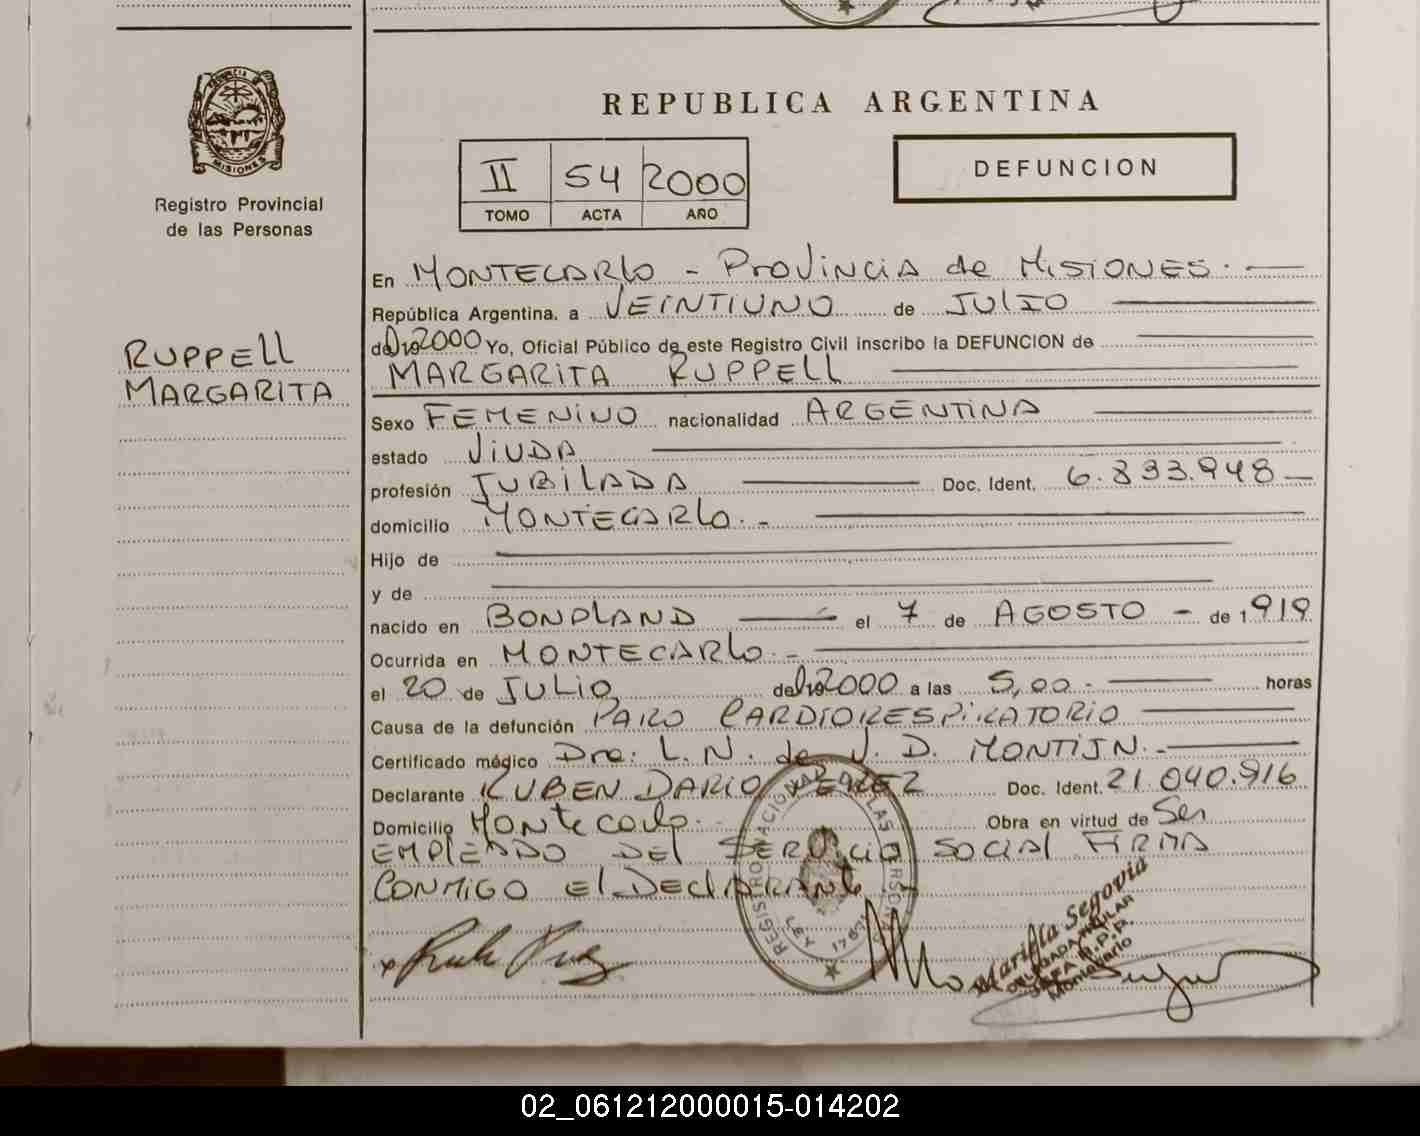 PROVINCIA D
MISIONES
Registro Provincial
de las Personas
RUPPELL
MARGARITA
REPUBLICA ARGENTINA
II 54 2000
TOMO ACTA AÑO
DEFUNCION
En MONTECARLO - PROVINCIA de MISIONES.
República Argentina, a VEINTIUNO de JULIO
de 2000 Yo, Oficial Público de este Registro Civil inscribo la DEFUNCION de
MARGARITA RUPPELL
Sexo FEMENINO nacionalidad ARGENTINA
estado VIUDA
profesión JUBILADA Doc. Ident. 6.833.948
domicilio MONTECARLO. -
Hijo de
y de
nacido en BONPLAND el 7 de AGOSTO - de 1919
Ocurrida en MONTECARLO. -
el 20 de JULIO de 2000 a las 5,00 - horas
Causa de la defunción PARO CARDIORESPIRATORIO
Certificado médico Dra: L. N. de V. D. MONTIJN. -
Declarante RUBEN DARIO PEREZ Doc. Ident. 21.040.916
Domicilio Montecarlo. Obra en virtud de Ser
EMPLEADO DEL SERVICIO SOCIAL FIRMA
CONMIGO El DECLARANte.-
REGISTRO NACIONAL DE LAS PERSONAS
LEY 17671
Mariela Segovia
DELEGADA TITULAR
R.P.P.
Montecarlo
02_061212000015-014202